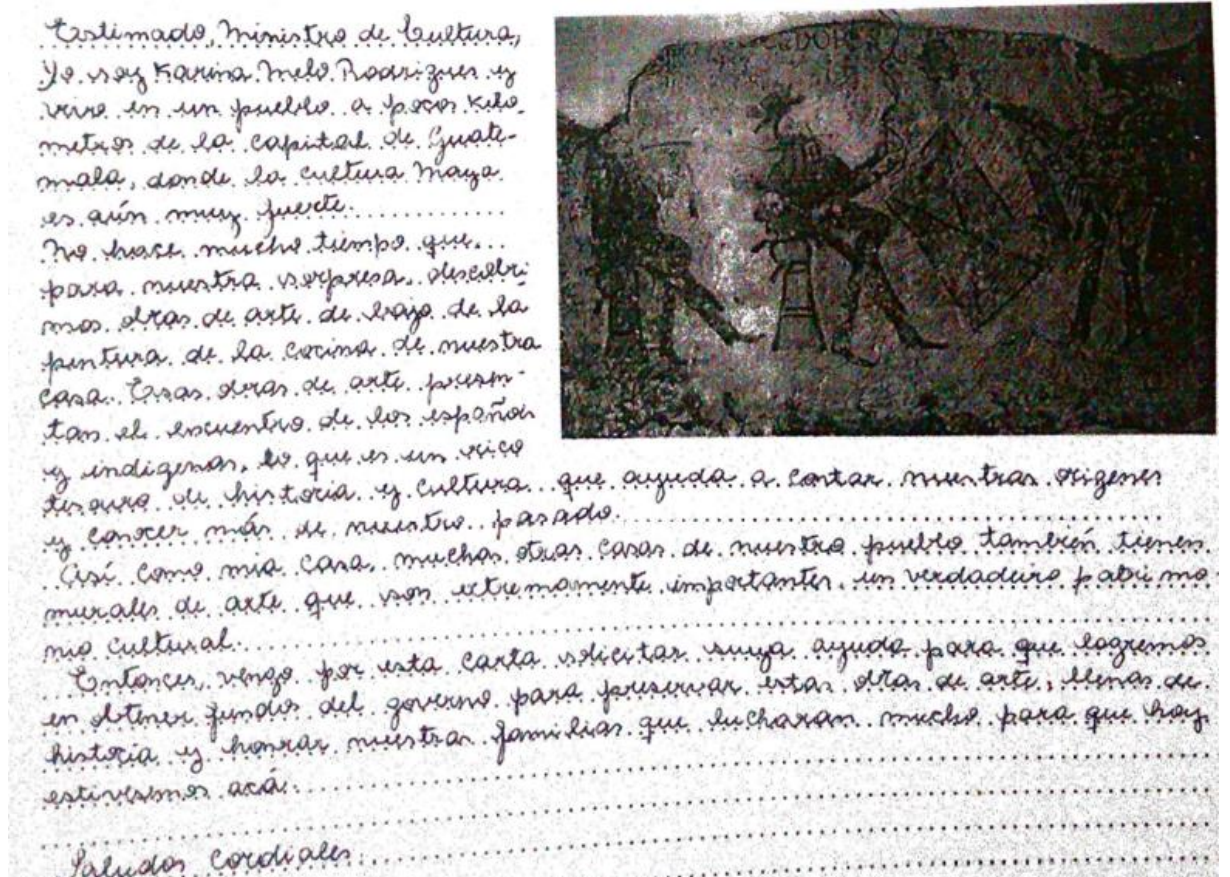 Estimado, Ministro de Cultura,
Yo soy Karina Melo Rodrigues y
vivo en un pueblo a pocos kilo-
metros de la capital de Guate-
mala, donde la cultura Maya
es aún muy fuerte.
No hace mucho tiempo que
para nuestra sorpresa, descobri-
mos obras de arte de bajo de la
pintura de la cocina de nuestra
casa. Esas obras de arte presen-
tan el encuentro de los españois
y indigenas, lo que es un rico
tesouro de historia y cultura que ayuda a contar nuestras origenes
y conocer más de nuestro pasado.
Así como mia casa, muchas otras casas de nuestro pueblo también tienen
murales de arte que son extremamente importantes, un verdadeiro patrimo-
nio cultural.
Entonces, vengo por esta carta solicitar suya ayuda para que logremos
en obtener fundos del governo para preservar estas obras de arte, llenas de
historia y honrar nuestras familias que lucharan mucho para que hoy
estivesemos acá.
Saludos Cordiales